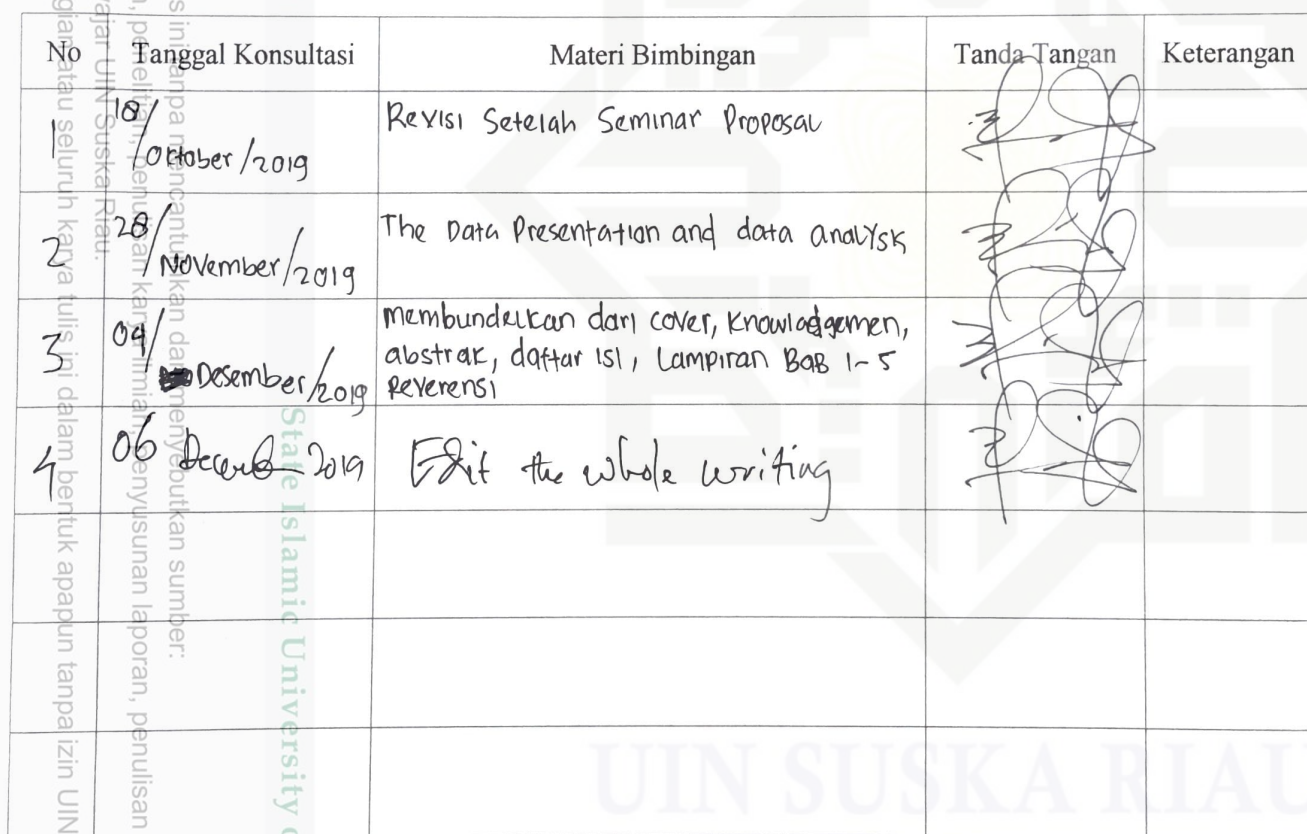 No Tanggal Konsultasi Materi Bimbingan Tanda Tangan Keterangan
1 18/ Oktober/2019 Revisi Setelah Seminar Proposal
2 28/ November/2019 The Data Presentation and data analysk
3 04/ Desember/2019 membundelkan dari cover, knowladgemen,
abstrak, daftar isi, Lampiran BAB 1-5
Reverensi
4 06 Decemb 2019 Edit the whole writing
State Islamic University
UIN SUSKA RIAU
s ini tanpa mencantumkan dan menyebutkan sumber:
penelitian, penulisan karya ilmiah, penyusunan laporan, penulisan
ajar UIN Suska Riau.
gian atau seluruh karya tulis ini dalam bentuk apapun tanpa izin UIN